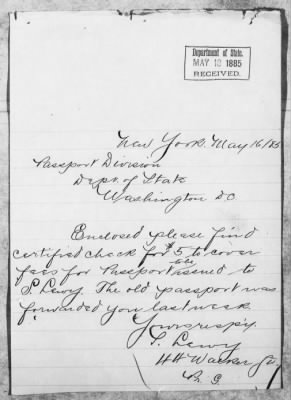 Department of State.
MAY 18 1885
RECEIVED.
New York. May 16/85
Passport Division
Dept. of State
Washington DC
Enclosed please find
certified check for $5 to cover
fees for Passport to be issued to
S. Lewy The old passport was
forwarded you last week.
Yours respy.
S. Lewy